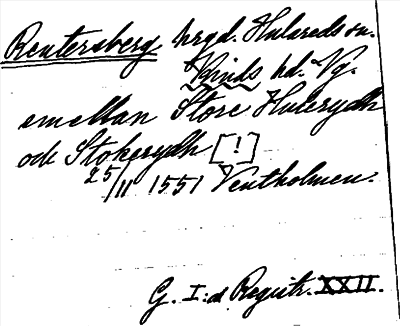 Reutersberg hrgd. Hulareds sn.
Kinds hd. Vg.
emellan Store Hulerydh
och Stokerydh [!]
25/11 1551 Ventholmen.
G. I:s Registr. XXII.